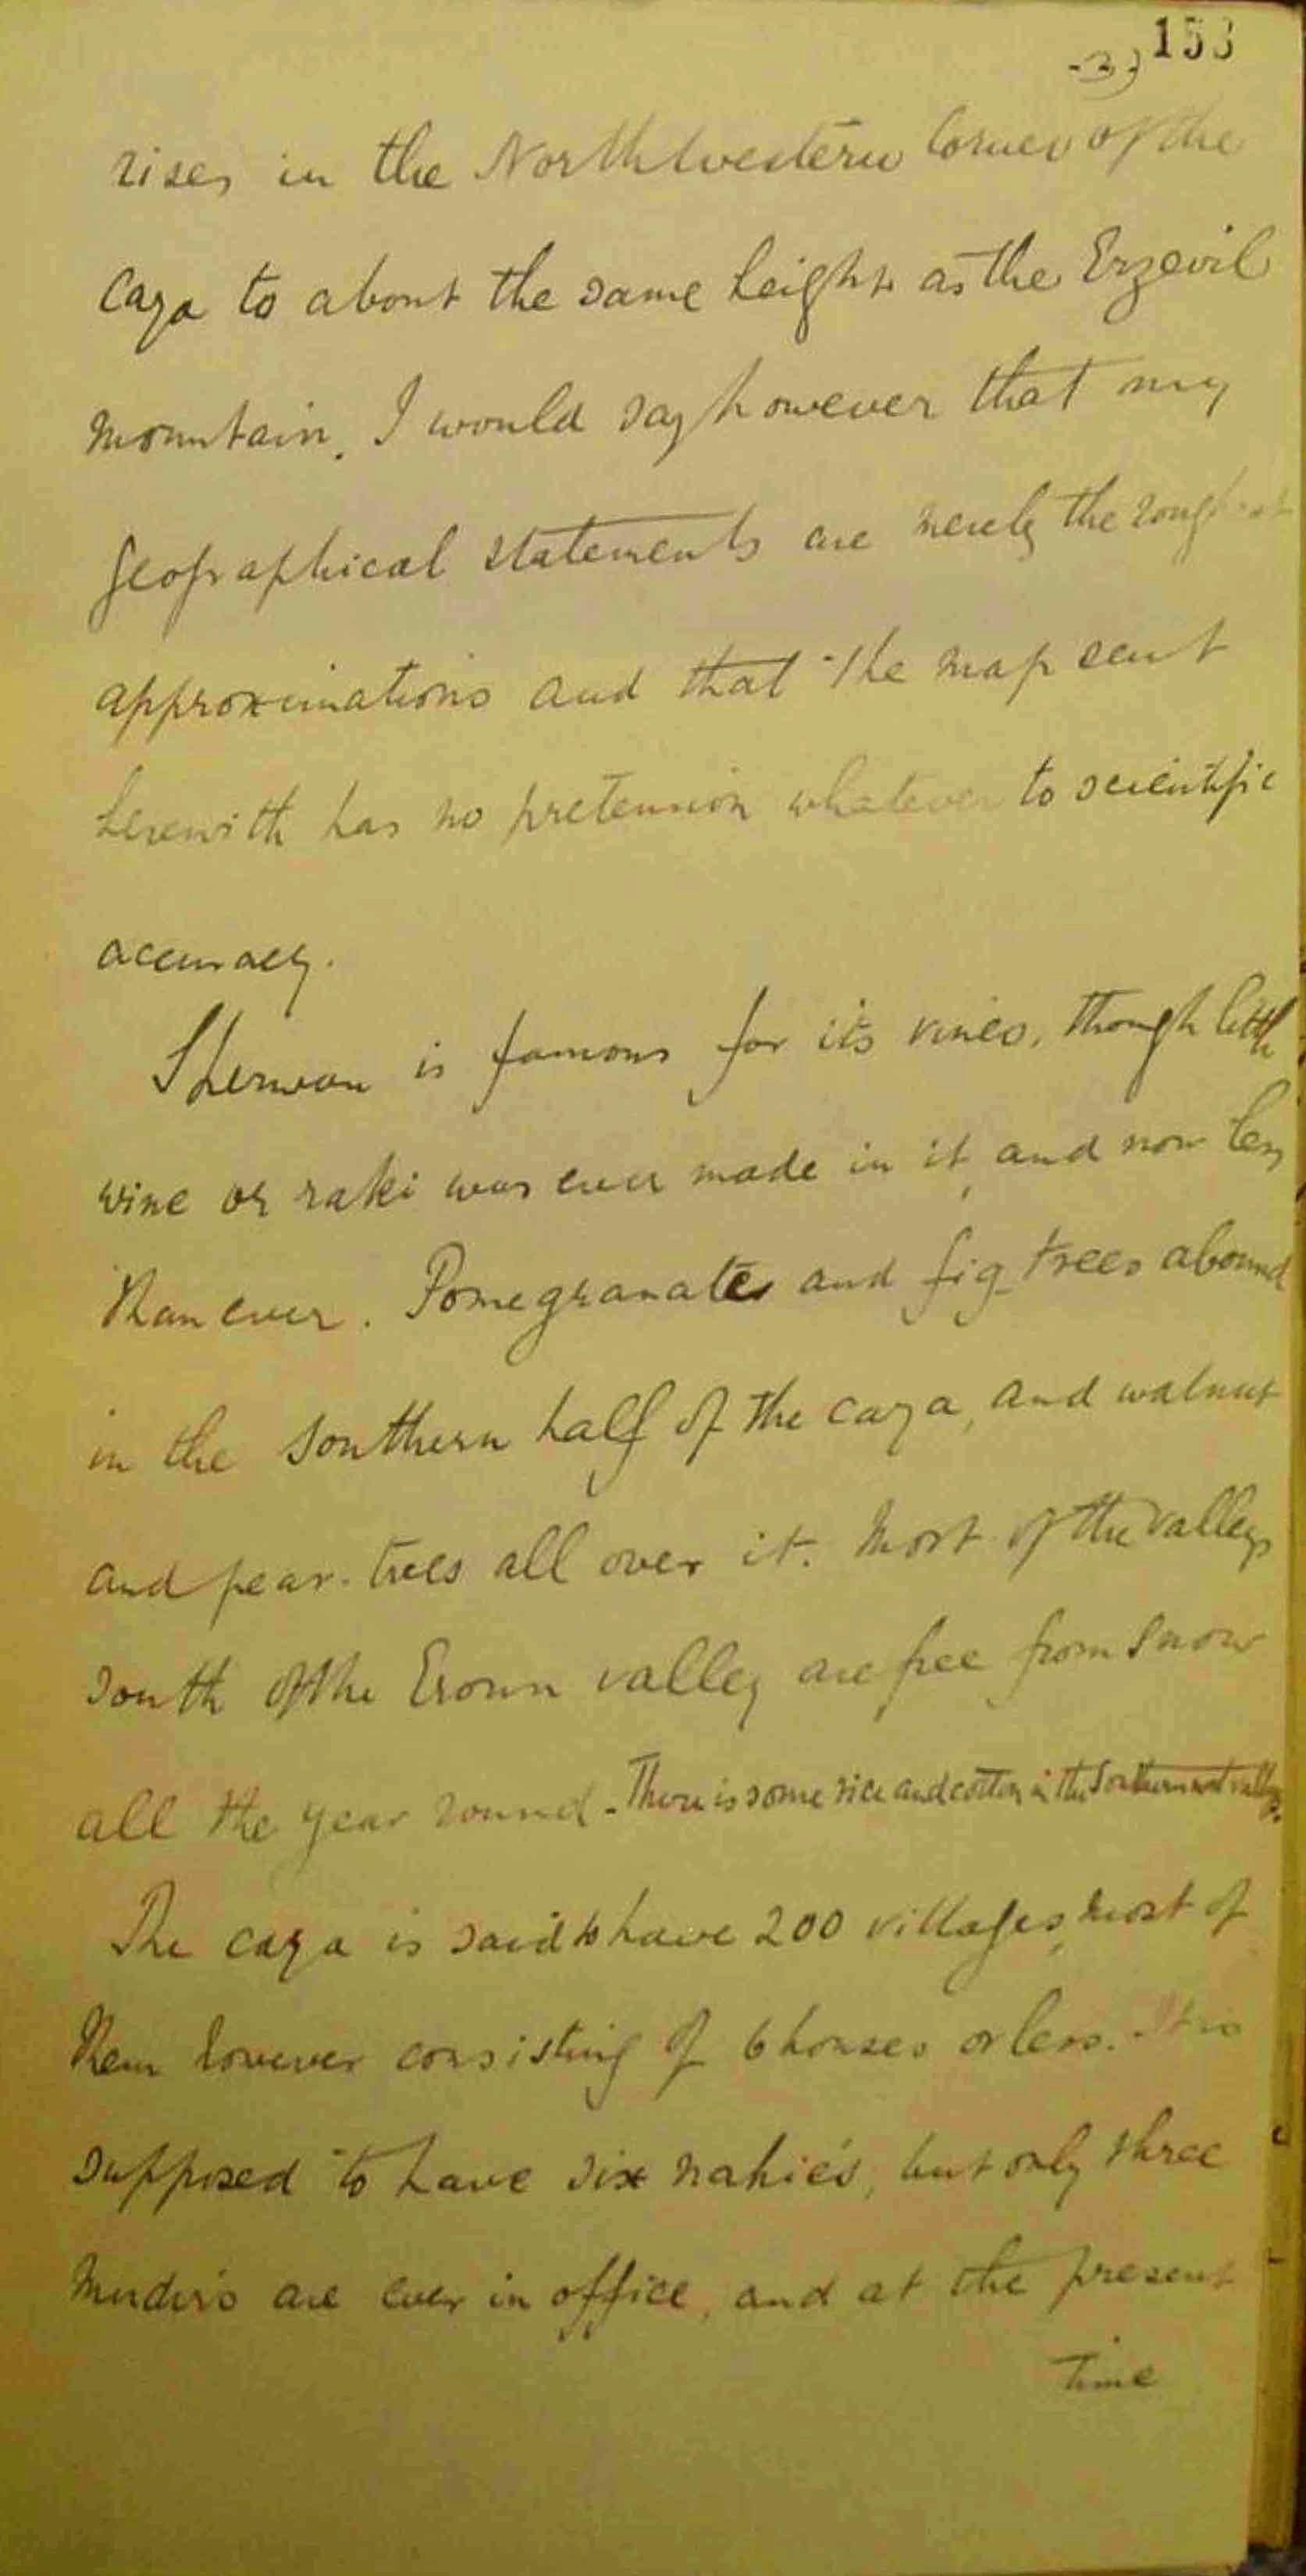 153
-3)
rises in the Northwestern corner of the
caza to about the same height as the Erzevil
mountain. I would say however that my
geographical statements are merely the roughest
approximations and that the map sent
herewith has no pretension whatever to scientific
accuracy.
Sherwan is famous for its vines, though little
wine or raki was ever made in it, and now less
than ever. Pomegranates and fig-trees abound
in the Southern half of the caza, and walnut
and pear-trees all over it. Most of the valleys
south of the Eroun valley are free from snow
all the year round - There is some rice and cotton in the Southernmost valleys.
The caza is said to have 200 villages, most of
them however consisting of 6 houses or less. It is
supposed to have six nahiés, but only three
Mudirs are ever in office, and at the present
time